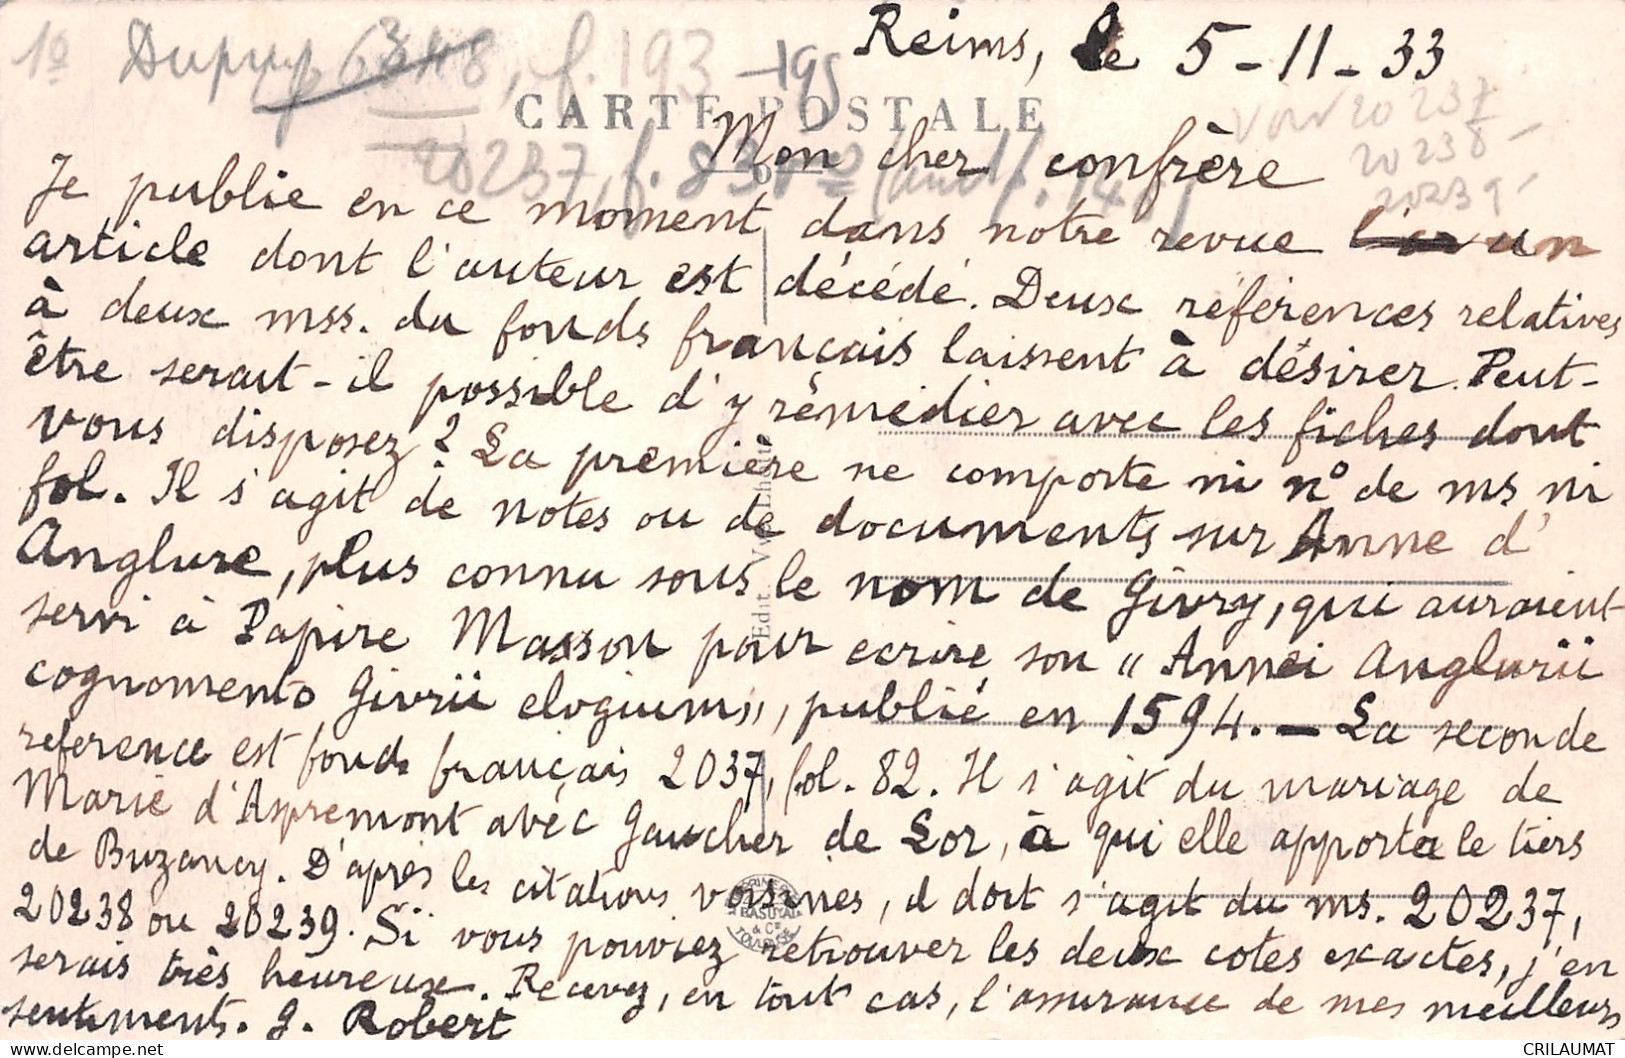 Reims, le 5-11-33
1º Dupuy 6348, f. 193-195
CARTE POSTALE
voir 20237
20238 -
20239 -
20237, f. 83
Mon cher confrère
Je publie en ce moment dans notre revue un
article dont l'auteur est décédé. Deux références relatives
à deux mss. du fonds français laissent à désirer. Peut-
être serait-il possible d'y rémédier avec les fiches dont
vous disposez ? La première ne comporte ni nº de ms ni
fol. Il s'agit de notes ou de documents sur Anne d'
Anglure, plus connu sous le nom de Givry, qui auraient
servi à Papire Masson pour ecrire son " Annei Anglurii
cognomento Givrii elogium», publié en 1594. — La seconde
reference est fonds français 2037, fol. 82. Il s'agit du mariage de
Marie d'Aspremont avec Gaucher de Lor, à qui elle apporta le tiers
de Buzancy. D'après les citations voisines, il doit s'agit du ms. 20237,
20238 ou 20239. Si vous pouviez retrouver les deux cotes exactes, j'en
serais très heureux. Recevez, en tout cas, l'assurance de mes meilleurs
sentiments. G. Robert
Edit.
BASUYAU
& Cie
TOULOUSE
CRILAUMAT